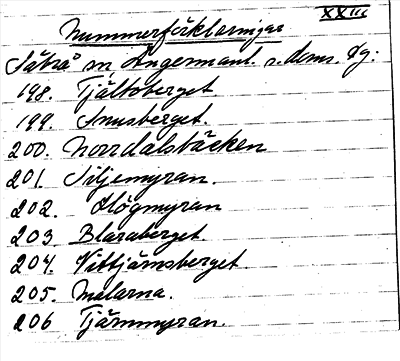 XXIII
Nummerförklaringar
Sätrå sn Ångermanl. s. doms. dg.
198. Tjältoberget
199. Snusberget.
200. Norrdalsbäcken
201. Siljemyran.
202. Högmyran
203 Blaraberget
204. Vittjärnsberget
205. Malarna.
206 Tjärnmyran.